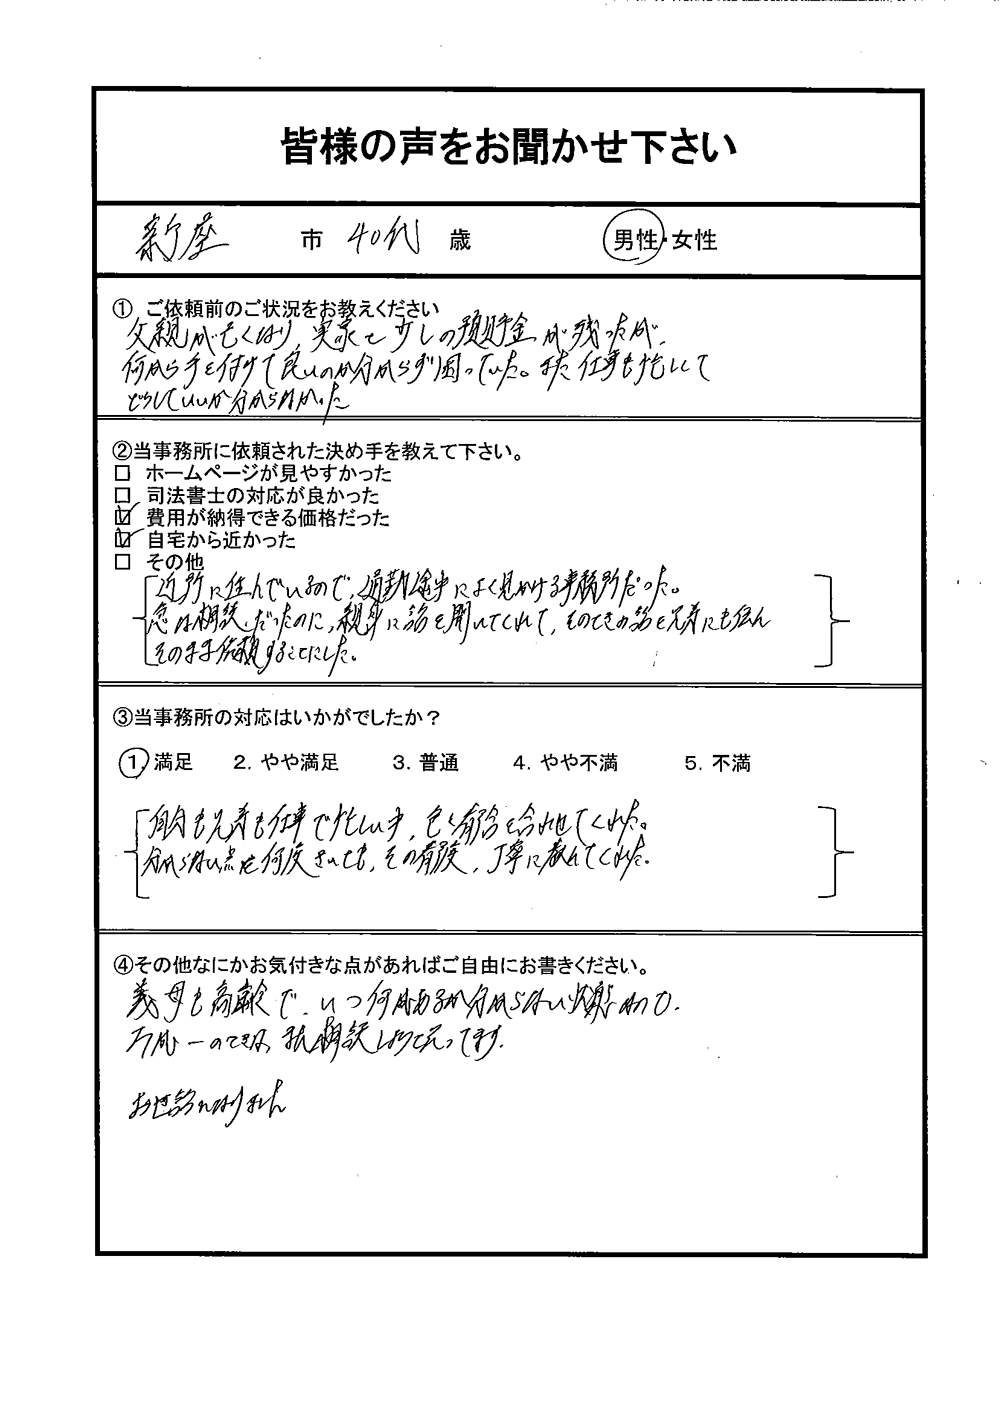 皆様の声をお聞かせ下さい
新座 市 40代 歳 男性・女性
① ご依頼前のご状況をお教えください
父親が亡くなり、実家と少しの預貯金が残ったが、
何から手を付けて良いのか分からず困っていた。また仕事も忙しくて
どうしていいか分からなかった
②当事務所に依頼された決め手を教えて下さい。
□ ホームページが見やすかった
□ 司法書士の対応が良かった
☑ 費用が納得できる価格だった
☑ 自宅から近かった
□ その他
近所に住んでいるので、通勤途中によく見かける事務所だった。
急な相談だったのに、親身に話を聞いてくれて、そのときの話を兄弟にも伝え
そのまま依頼することにした。
③当事務所の対応はいかがでしたか？
1. 満足 2. やや満足 3. 普通 4. やや不満 5. 不満
自分も兄弟も仕事で忙しい中、色々都合を合わせてくれた。
分からない点を何度きいても、その都度、丁寧に教えてくれた。
④その他なにかお気付きな点があればご自由にお書きください。
義母も高齢で、いつ何があるか分からない状態なので、
万が一のときは、また相談しようと思ってます。
お世話になりました